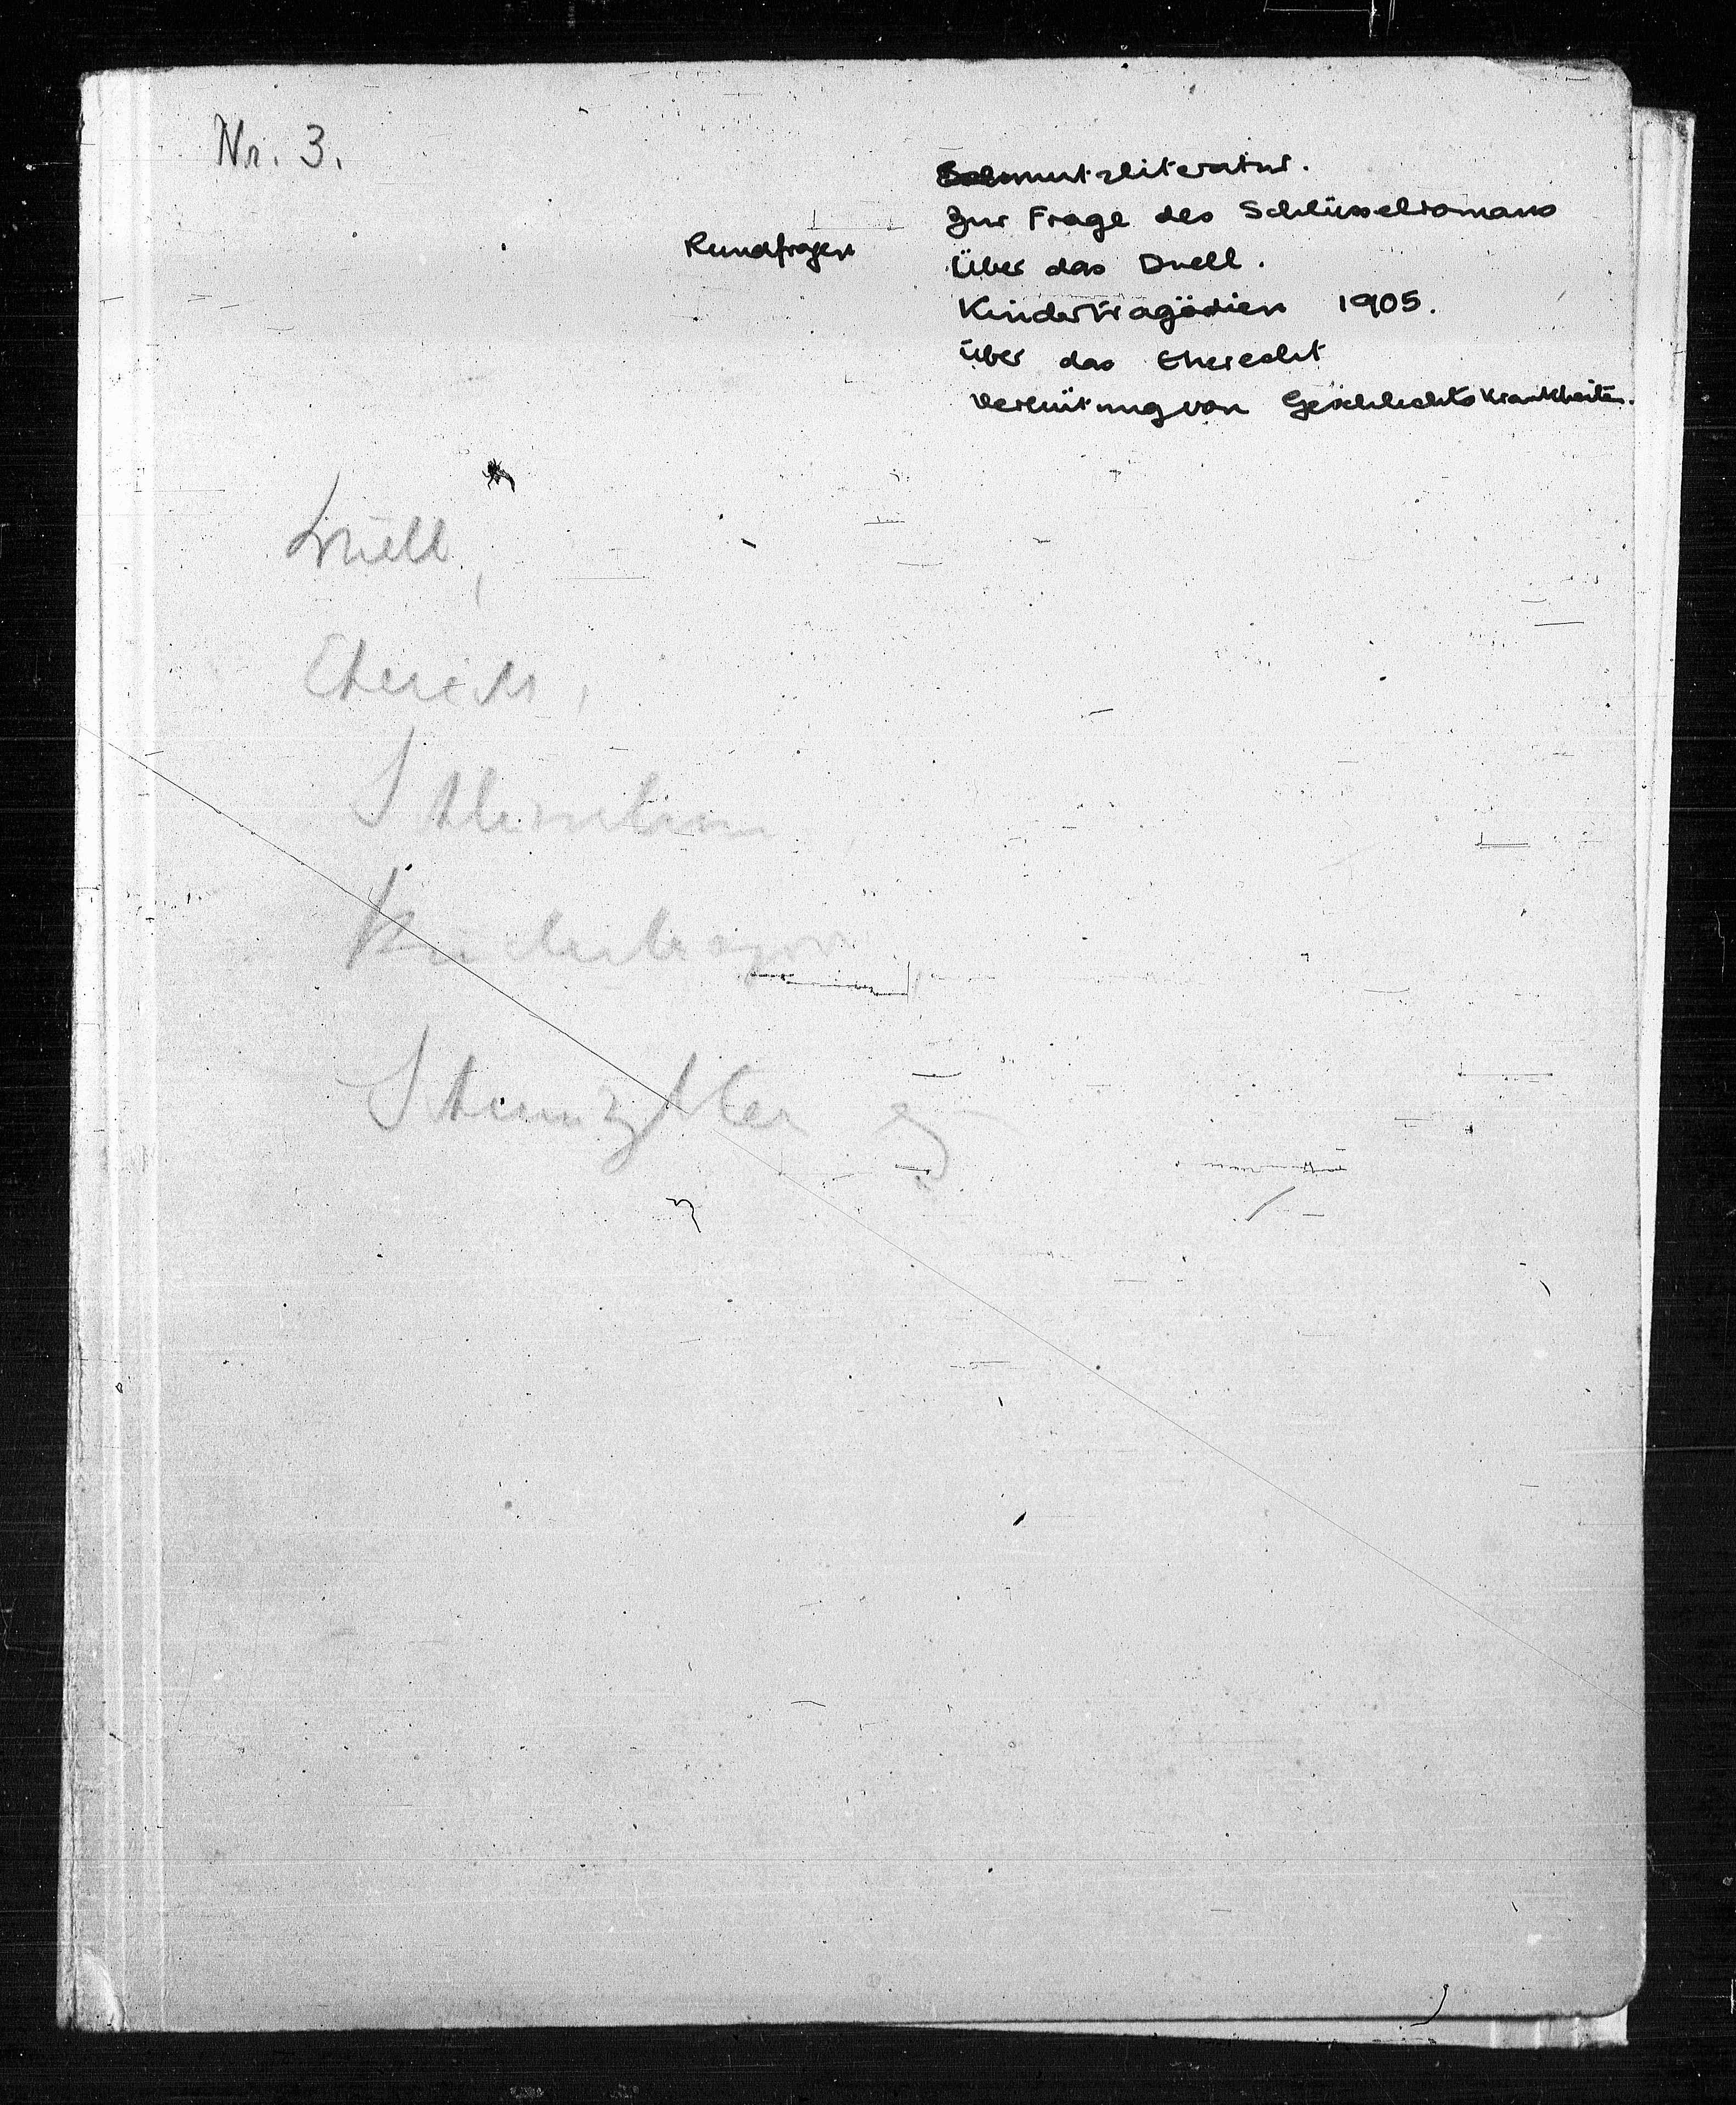 Nr. 3.
Schmutzliteratur.
Zur Frage des Schlüsselromans
Rundfragen
Über das Duell.
Kindertragödien 1905.
über das Eherecht
Verhütung von Geschlechtskrankheiten.
Duell,
Eherecht,